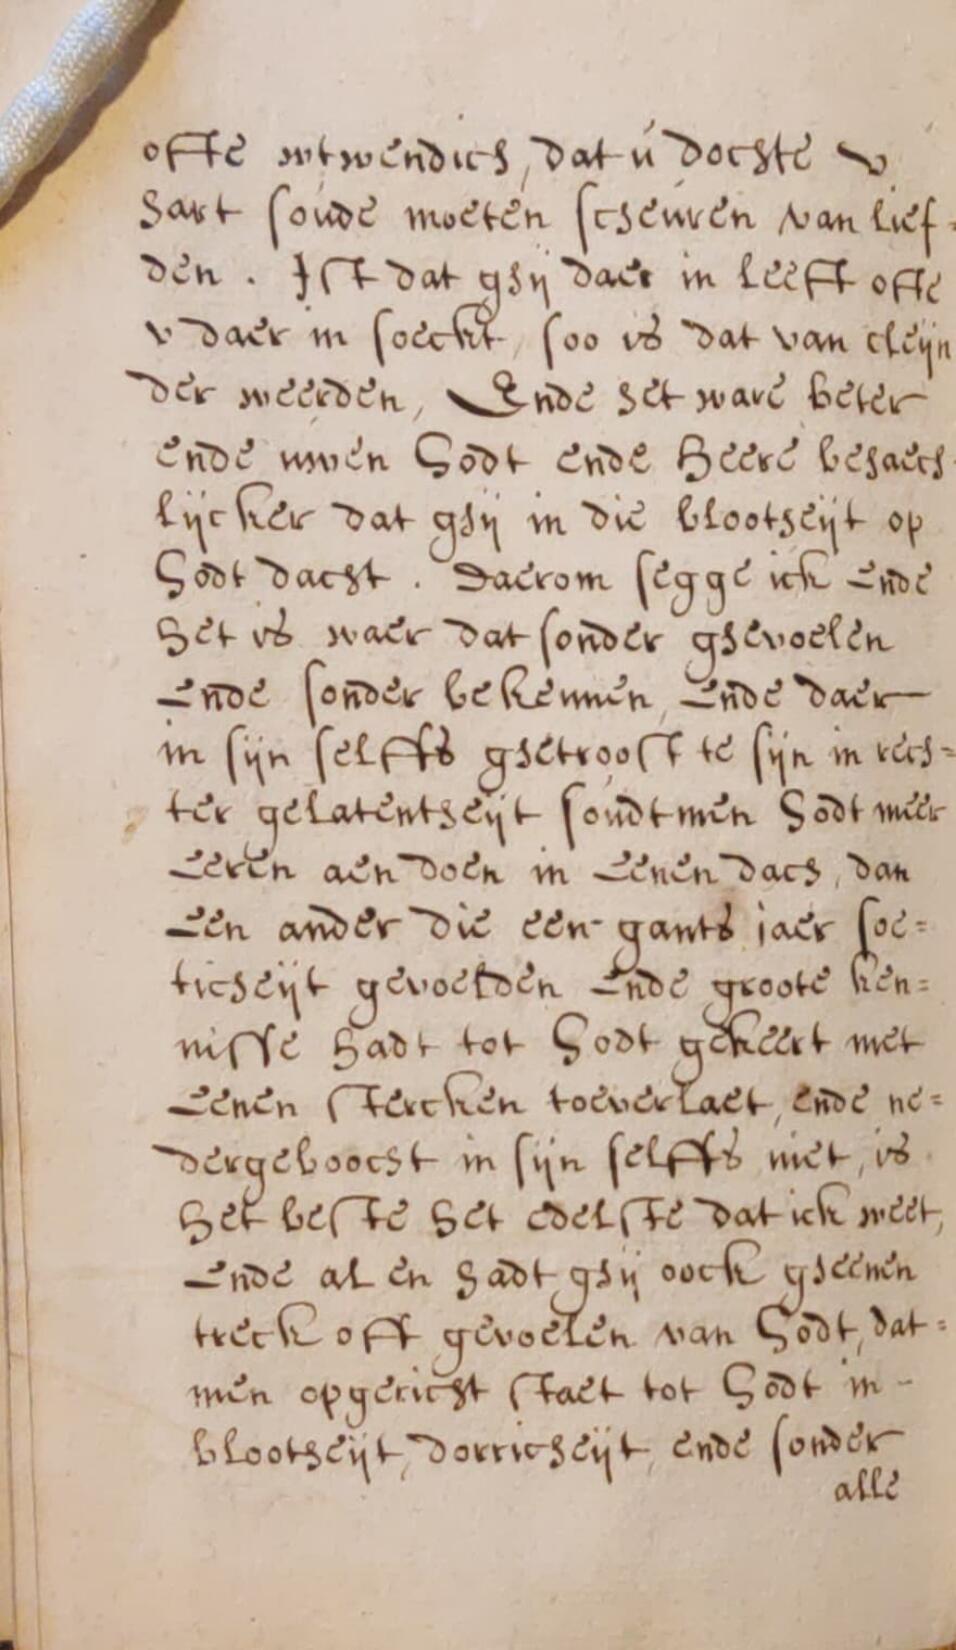 offe wtwendich, dat ú dochte v
hart soúde moeten scheúren van lief=
den. Ist dat ghij daer in leeft offe
v daer in soeckt, soo is dat van cleijn
der weerden, Ende het ware beter
ende uwen Godt ende Heere behaech-
lijcker dat ghij in die blootheijt op
Godt dacht. Daerom segge ick Ende
Het is waer dat sonder ghevoelen
Ende sonder bekennen, Ende daer
in sijn selffs ghetroost te sijn in rech=
ter gelatentheijt soúdtmen Godt meer
Eeren aen doen in Eenen dach, dan
Een ander die een gants jaer soe=
ticheijt gevoelden Ende groote ken=
nisse Hadt tot Godt gekeert met
Eenen stercken toeverlaet, ende ne=
dergeboocht in sijn selffs niet, is
Het beste Het edelste dat ick weet,
Ende al en Hadt ghij oock gheenen
treck off gevoelen van Godt, dat=
men opgericht staet tot Godt in-
blootheijt, dorricheijt, ende sonder
alle